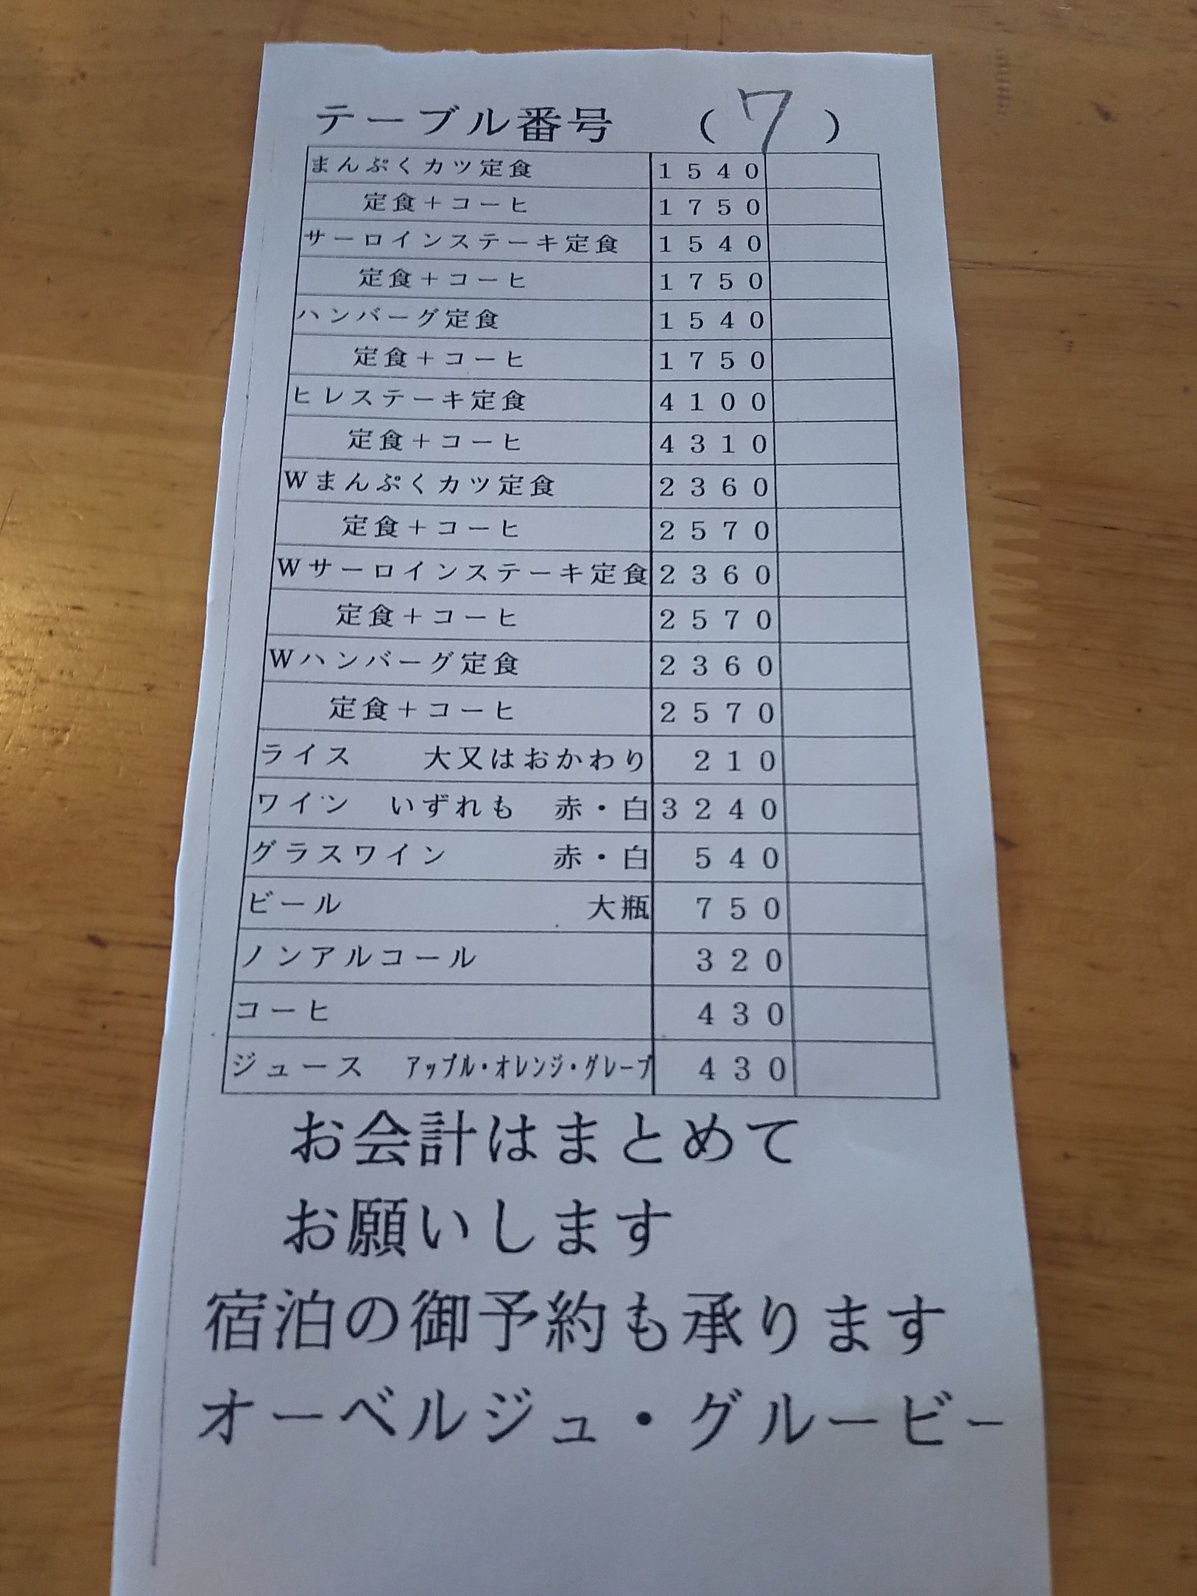 テーブル番号 （7）
まんぷくカツ定食 1540
定食＋コーヒ 1750
サーロインステーキ定食 1540
定食＋コーヒ 1750
ハンバーグ定食 1540
定食＋コーヒ 1750
ヒレステーキ定食 4100
定食＋コーヒ 4310
Wまんぷくカツ定食 2360
定食＋コーヒ 2570
Wサーロインステーキ定食 2360
定食＋コーヒ 2570
Wハンバーグ定食 2360
定食＋コーヒ 2570
ライス 大又はおかわり 210
ワイン いずれも 赤・白 3240
グラスワイン 赤・白 540
ビール 大瓶 750
ノンアルコール 320
コーヒ 430
ジュース アップル・オレンジ・グレープ 430
お会計はまとめて
お願いします
宿泊の御予約も承ります
オーベルジュ・グルービー